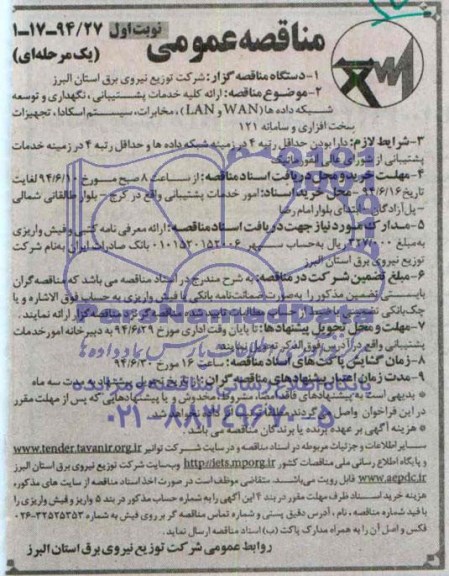 نوبت اول ۹۴/۲۷-۱۷-۱
مناقصه عمومی
(یک مرحله‌ای)
۱-دستگاه مناقصه گزار: شرکت توزیع نیروی برق استان البرز
۲-موضوع مناقصه: ارائه کلیه خدمات پشتیبانی، نگهداری و توسعه
شبکه داده ها (WAN و LAN)، مخابرات، سیستم اسکادا، تجهیزات
سخت افزاری و سامانه ۱۲۱
۳-شرایط لازم: دارا بودن حداقل رتبه ۴ در زمینه شبکه داده ها و حداقل رتبه ۴ در زمینه خدمات
پشتیبانی از شورای عالی انفورماتیک
۴-مهلت خرید و محل دریافت اسناد مناقصه: از ساعت ۸ صبح مورخ ۹۴/۶/۱۰ لغایت
تاریخ ۹۴/۶/۱۶- محل خرید اسناد: امور خدمات پشتیبانی واقع در کرج - بلوار طالقانی شمالی
- پل آزادگان - ابتدای بلوار امام رضا
۵-مدارک مورد نیاز جهت دریافت اسناد مناقصه: ارائه معرفی نامه کتبی و فیش واریزی
به مبلغ ۳۲۷/۰۰۰ ریال به حساب سپهر ۰۱۰۱۵۲۰۱۵۲۰۰۶ بانک صادرات ایران به نام شرکت
توزیع نیروی برق استان البرز
۶-مبلغ تضمین شرکت در مناقصه: به شرح مندرج در اسناد مناقصه می باشد که مناقصه گران
بایستی تضمین مذکور را به صورت ضمانت نامه بانکی یا فیش واریزی به حساب فوق الاشاره و یا
چک بانکی تضمین شده مناقصه گزار ارائه نمایند.
۷-مهلت و محل تحویل پیشنهادها: تا پایان وقت اداری مورخ ۹۴/۶/۲۹ به دبیرخانه امور خدمات
پشتیبانی واقع در آدرس فوق الذکر تحویل نمایند.
۸-زمان گشایش پاکت های اسناد مناقصه: ساعت ۱۶ مورخ ۹۴/۶/۳۰
۹-مدت زمان اعتبار پیشنهادهای مناقصه گران: از تاریخ تحویل پیشنهاد به مدت سه ماه
* بدیهی است به پیشنهادهای فاقد امضاء، مشروط، مخدوش و یا پیشنهادهایی که پس از مهلت مقرر
در این فراخوان واصل می گردند، مطلقا ترتیب اثر داده نخواهد شد.
* هزینه آگهی بر عهده برنده یا برندگان مناقصه می باشد.
سایر اطلاعات و جزئیات مربوطه در اسناد مناقصه و در سایت شرکت توانیر www.tender.tavanir.org.ir
و پایگاه اطلاع رسانی ملی مناقصات کشور http://iets.mporg.ir وب سایت شرکت توزیع نیروی برق استان البرز
www.aepdc.ir قابل رویت می باشد. متقاضی موظف است در صورت اخذ اسناد مناقصه از سایت های مذکور،
هزینه خرید اسناد ظرف مهلت مقرر در بند ۴ این آگهی را به شماره حساب مذکور در بند ۵ واریز و فیش واریزی را
با قید شماره مناقصه، نام، آدرس دقیق پستی و شماره تماس مناقصه گر بر روی فیش به شماره ۳۲۵۲۵۳۵۳-۰۲۶
فکس و اصل آن را به همراه مدارک پاکت (ب) اسناد مناقصه ارسال نماید.
روابط عمومی شرکت توزیع نیروی برق استان البرز
۰۲۱-۸۸۳۴۹۶۷۰-۵